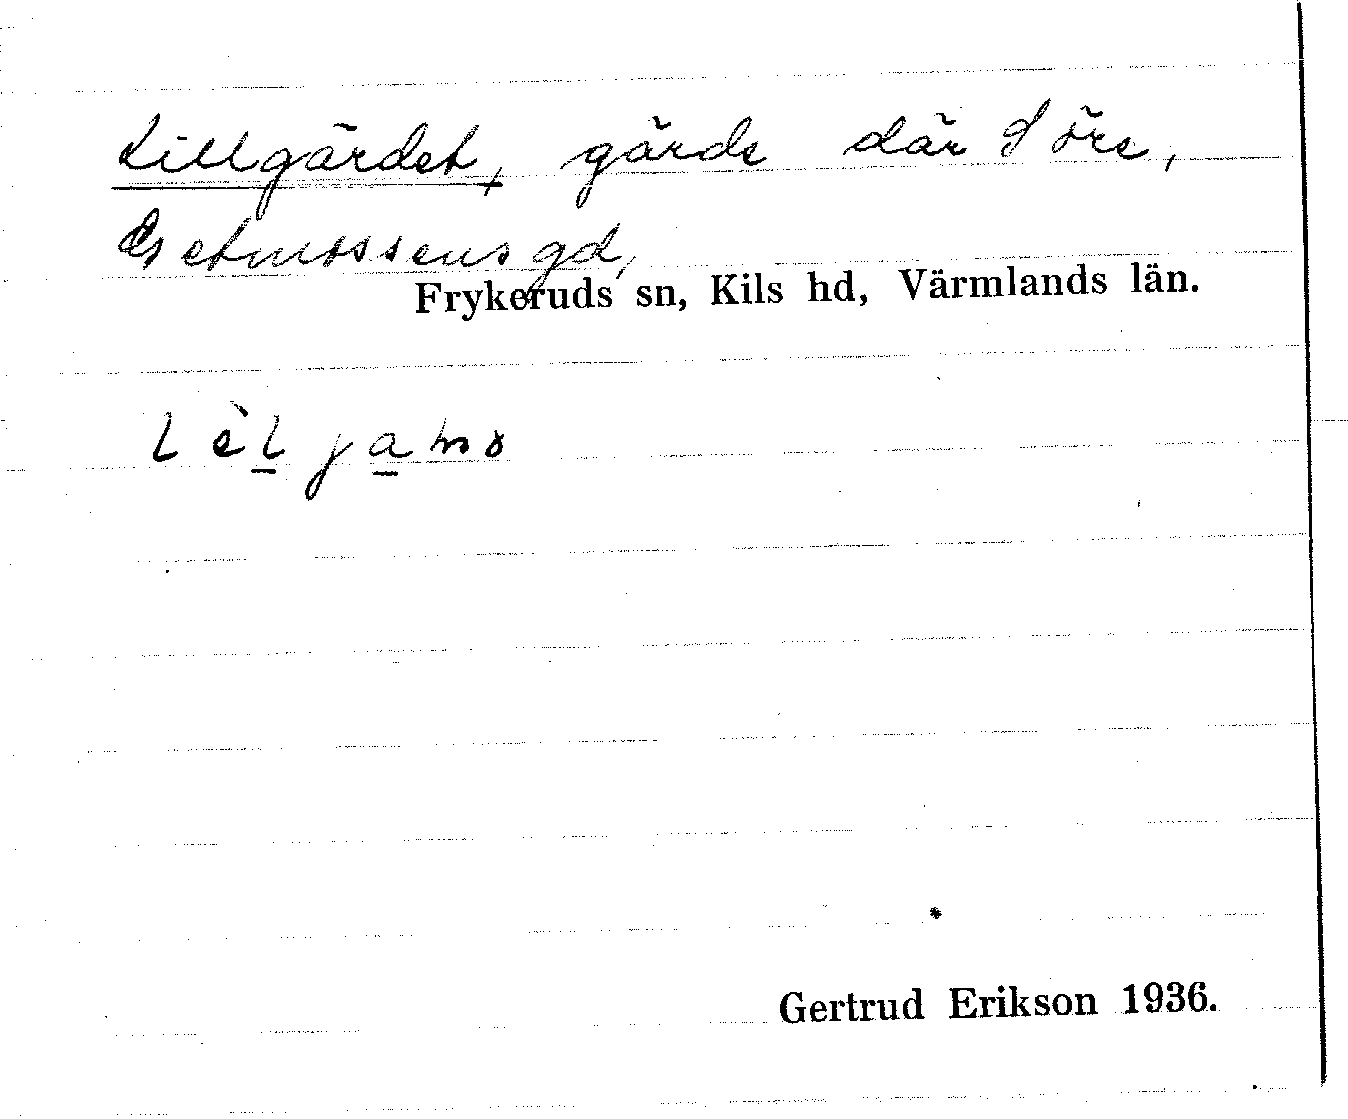 Lillgärdet, gärde där Söre,
Getmossens gd,
Frykeruds sn, Kils hd, Värmlands län.
Gertrud Erikson 1936.